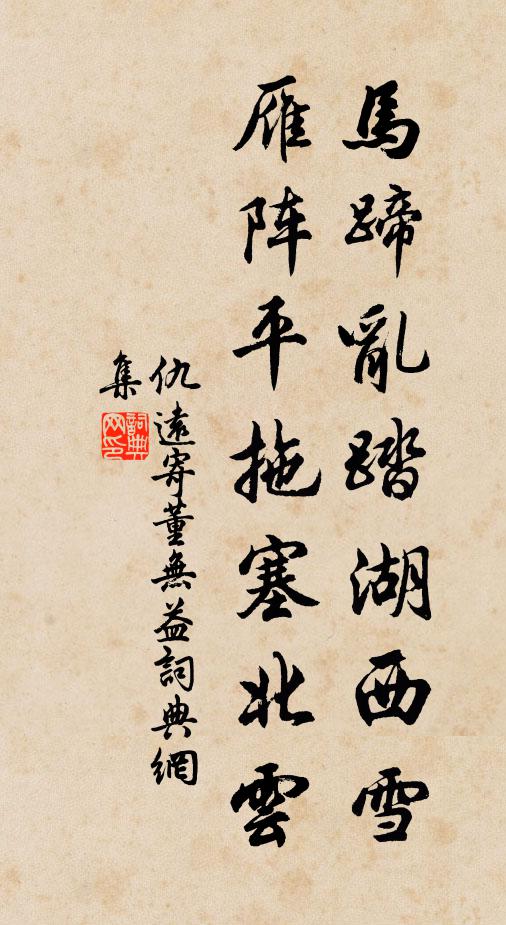 馬蹄亂踏湖西雪
雁阵平拖塞北雲
仇遠寄董無益詞典網
集
詞典网印